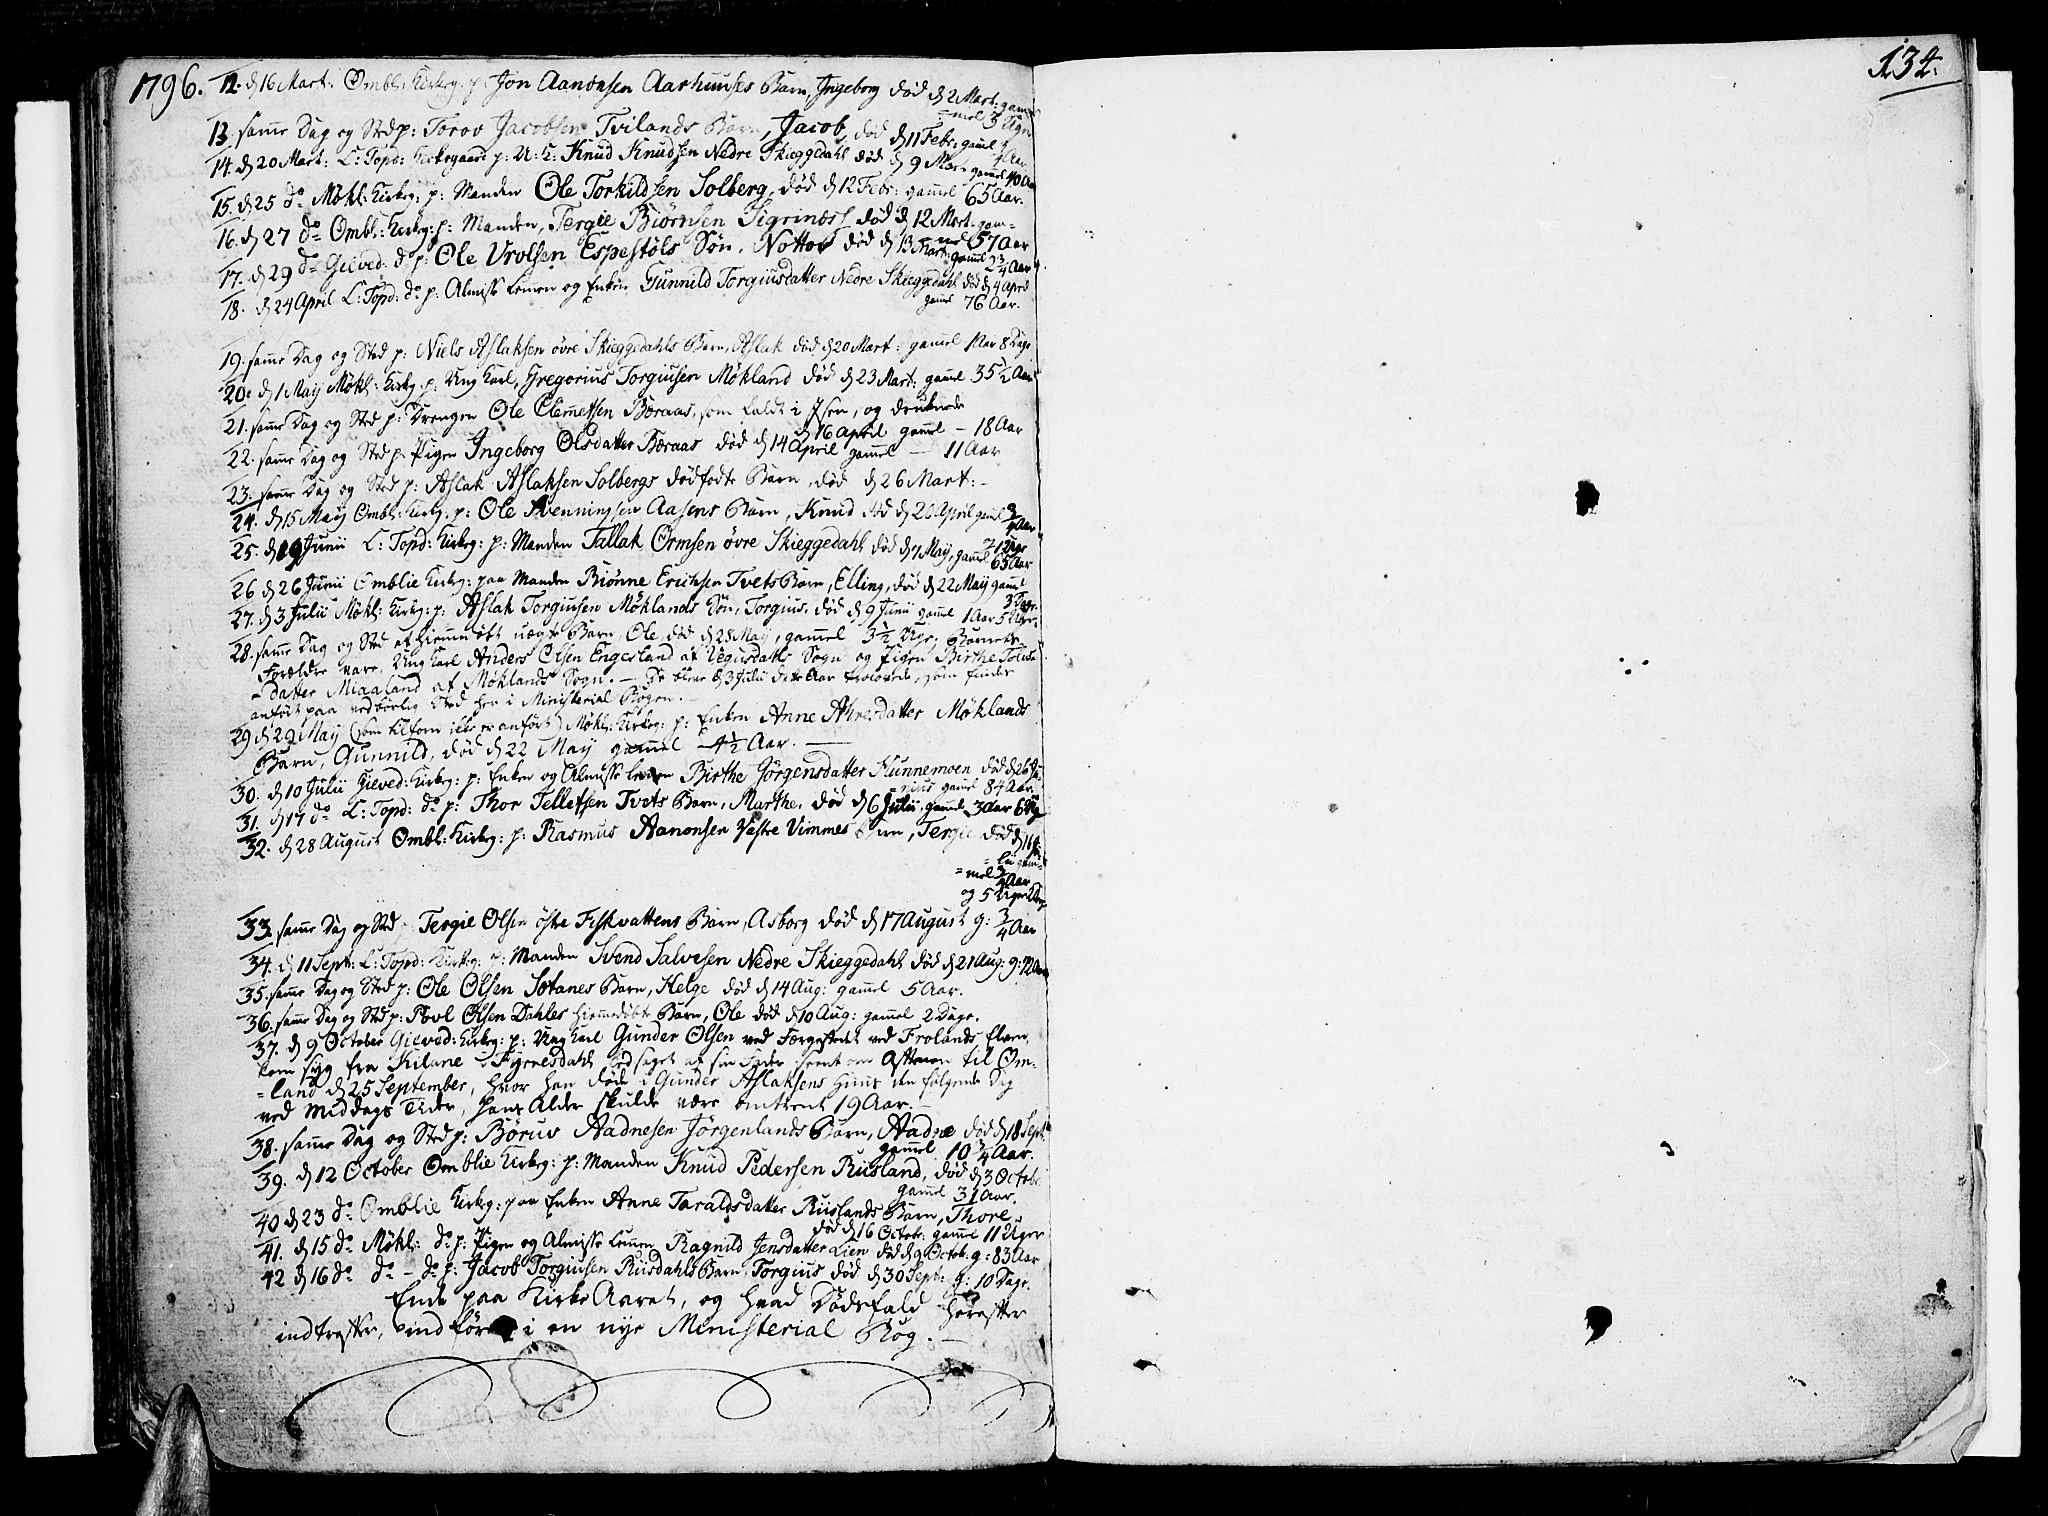 1796.
134.
12. d 16 Mart: Ombl: Kirkg: p: Jon Aanonsen Aashuuses Barn, Ingeborg død d 2 Mart: gam=
=mel 3 Uger
13. samme Dag og Sted p: Torov Jacobsen Tvilands Barn, Jacob, død d 11 Febr: gamel
14. d 20 Mart: L: Topd: Kirkegaard p: U: K: Knud Knudsen Nedre Skieggedahl død d 9 Mart: gamel 40 Aar
15. d 25 do Møkl: Kirkg: p: Manden Ole Torkildsen Solberg, død d 12 Febr: gamel 65 Aar.
16. d 27 do Ombl: Kirkg: p: Manden, Tergie Biørnsen Sigrinæss død d 12 Mart: gam=
=mel 57 Aar
17. d 29 do Gieved: do p: Ole Vrolsen Espestøls Søn, Nottov død d 13 Mart: gamel 2 3/4 Aar
18. d 24 April L: Topd: do p: Almisse Lemen og Enken Gunnild Torgiusdatter Nedre Skieggedahl død d 4 April
gamel 76 Aar.
19. samme Dag og Sted p: Niels Aslaksen øvre Skieggedahls Barn, Aslak død d 20 Mart: gamel 1 Aar 8 Dage
20. d 1 May Møkl: Kirkg: p: Ung Karl, Gregorius Torgiusen Møkland død d 23 Mart: gamel 35 1/2 Aar
21. samme Dag og Sted p: Drengen Ole Clemetsen Beraas, som faldt i Isen, og druknede
d 16 April gamel – 18 Aar
22. samme Dag og Sted p: Pigen Ingeborg Olsdatter Beraas død d 14 April gamel — 11 Aar
23. samme Dag og Sted p: Aslak Aslaksen Solbergs dødfødte Barn, død d 26 Mart: –
24. d 15 May Ombl: Kirkg: p: Ole Svenningsen Aasens Barn, Knud død d 20 April gamel 3/4 Aar
25. d 19 Junii L: Topd: Kirkg: p: Manden Tallak Ormsen øvre Skieggedahl død d 7 May, gamel 65 Aar
26 d 26 Junii Omblie Kirkg: paa Manden Biønne Erichsen Tvets Barn, Elling, død d 22 May gamel
3 Dage.
27. d 3 Julii Møkl: Kirkg: p: Aslak Torgiusen Møklands Søn, Torgius, død d 9 Junii gamel 1 Aar 5 Uger
28. samme Dag og Sted et hiemmedøbt uægte Barn, Ole, død d 28 May, gammel 3 1/2 Uge, Barnets
Forældre vare, Ung Karl Anders Olsen Engesland af Vegusdahls Sogn og Pigen Birthe
=datter Miaaland af Møklands Sogn. – De bleve d 3 Julii dette Aar trolovede, som findes
anført paa vedbørlig Sted her i Ministerial Bogen. –
29 d 29 May (som tilforn ikke er anført) Møkl: Kirkg: p: Enken Anne Ahresdatter Møklands
Barn, Gunnild, død d 22 May gamel 4 1/2 Aar. —
30. d 10 Julii Gieved: Kirkg: p: Enken og Almisse Lemen Birthe Jørgensdatter Hunnemoen død d 26 Ju=
=nius gamel 84 Aar.
31. d 17 do L: Topd: do p: Thor Tellefsen Tvets Barn, Marthe, død d 6 Julii, gamel 3 Aar 6 Uger
32. d 28 August Ombl: Kirkg: p: Rasmus Aanonsen Vestre Vimmes Barn, Tergie død d 16 Ju
=lii gam=
=mel 3/4 Aar
og 5 Uger
33. samme Dag og Sted Tergie Olsen østre Fiskvattens Barn, Asborg død d 17 August g: 3/4 Aar
34. d 11 Sept: L: Topd: Kirkg: p: Manden Svend Salvesen Nedre Skieggedahl død d 21 Aug: g: 72 Aar
35. samme Dag og Sted p: Ole Olsen Sotanes Barn, Helge død d 14 Aug: gamel 5 Aar.
36. samme Dag og Sted p: Povl Olsen Dahles hiemmedøbt Barn, Ole død d 10 Aug: gamel 2 Dage.
37. d 9 October Gieved: Kirkg: p: Ung Karl Gunder Olsen ved Færgestedet ved Frolands Elven
kom syg fra Kilane i Fyrresdahl ledsaget af sin Fader sent om Aftenen til Om=
=land d 25 September, hvor han døde i Gunder Aslaksens Huus den følgende Dag
ved Middags Tider, hans Alder skulde være omtrent 19 Aar. –
38. samme Dag og Sted p: Børuv Aadnesen Jörgenlands Barn, Aadne død d 18 Sept:
gamel 10 3/4 Aar.
39. d 12 October Omblie Kirkg: p: Manden Knud Pedersen Riisland, død d 3 Octobr
gamel 31 Aar.
40 d 23 do Omblie Kirkg: paa Enken Anne Taraldsdatter Riislands Barn, Thore,
død d 16 Octob: gamel 11 Uger
41. d 15 do Møkl: do p: Pigen og Almisse Lemen Ragnild Jensdatter Lien død d 9 Octob: g: 83 Aar
42 d 16 do do – do p: Jacob Torgiusen Riisdahls Barn, Torgius død d 30 Sept: g: 10 Dage.
Ende paa Kirke Aaret, og hvad Dødsfald herefter
indtreffer, indføres i en nye Ministerial Bog. –